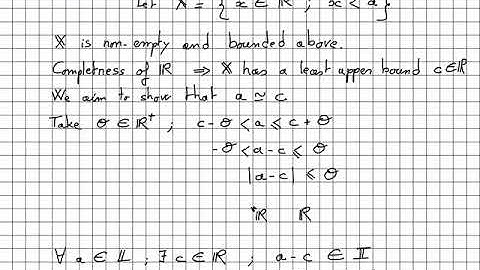 Let X = { x ∈ ℝ ; x < a }
X is non-empty and bounded above.
Completness of ℝ ⇒ X has a least upper bound c ∈ ℝ
We aim to show that a ≃ c
Take θ ∈ ℝ⁺ ; c - θ < a ⩽ c + θ
-θ < a - c ⩽ θ
|a - c| ⩽ θ
*ℝ ℝ
∀ a ∈ 𝕃 ; ∃ c ∈ ℝ ; a - c ∈ 𝕀